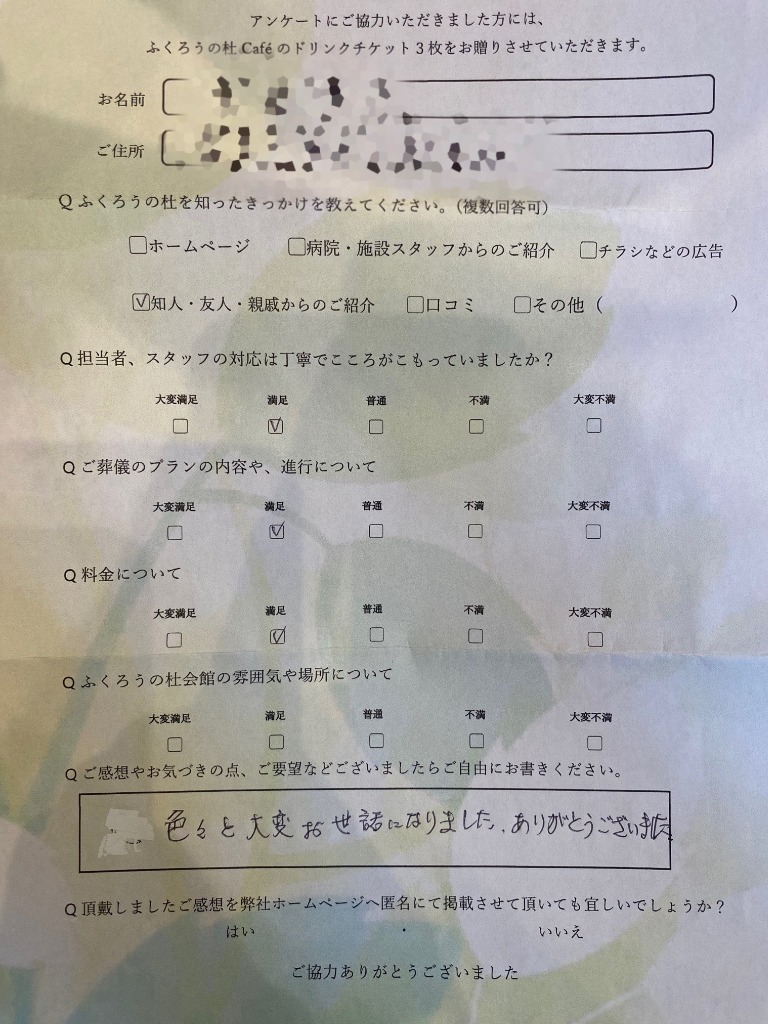 アンケートにご協力いただきました方には、
ふくろうの杜Caféのドリンクチケット3枚をお贈りさせていただきます。
お名前
ご住所
Q ふくろうの杜を知ったきっかけを教えてください。(複数回答可)
□ホームページ □病院・施設スタッフからのご紹介 □チラシなどの広告
☑知人・友人・親戚からのご紹介 □口コミ □その他( )
Q 担当者、スタッフの対応は丁寧でこころがこもっていましたか?
大変満足 満足 普通 不満 大変不満
□ ☑ □ □ □
Q ご葬儀のプランの内容や、進行について
大変満足 満足 普通 不満 大変不満
□ ☑ □ □ □
Q 料金について
大変満足 満足 普通 不満 大変不満
□ ☑ □ □ □
Q ふくろうの杜会館の雰囲気や場所について
大変満足 満足 普通 不満 大変不満
□ □ □ □ □
Q ご感想やお気づきの点、ご要望などございましたらご自由にお書きください。
色々と大変お世話になりました。ありがとうございました
Q 頂戴しましたご感想を弊社ホームページへ匿名にて掲載させて頂いても宜しいでしょうか?
はい ・ いいえ
ご協力ありがとうございました